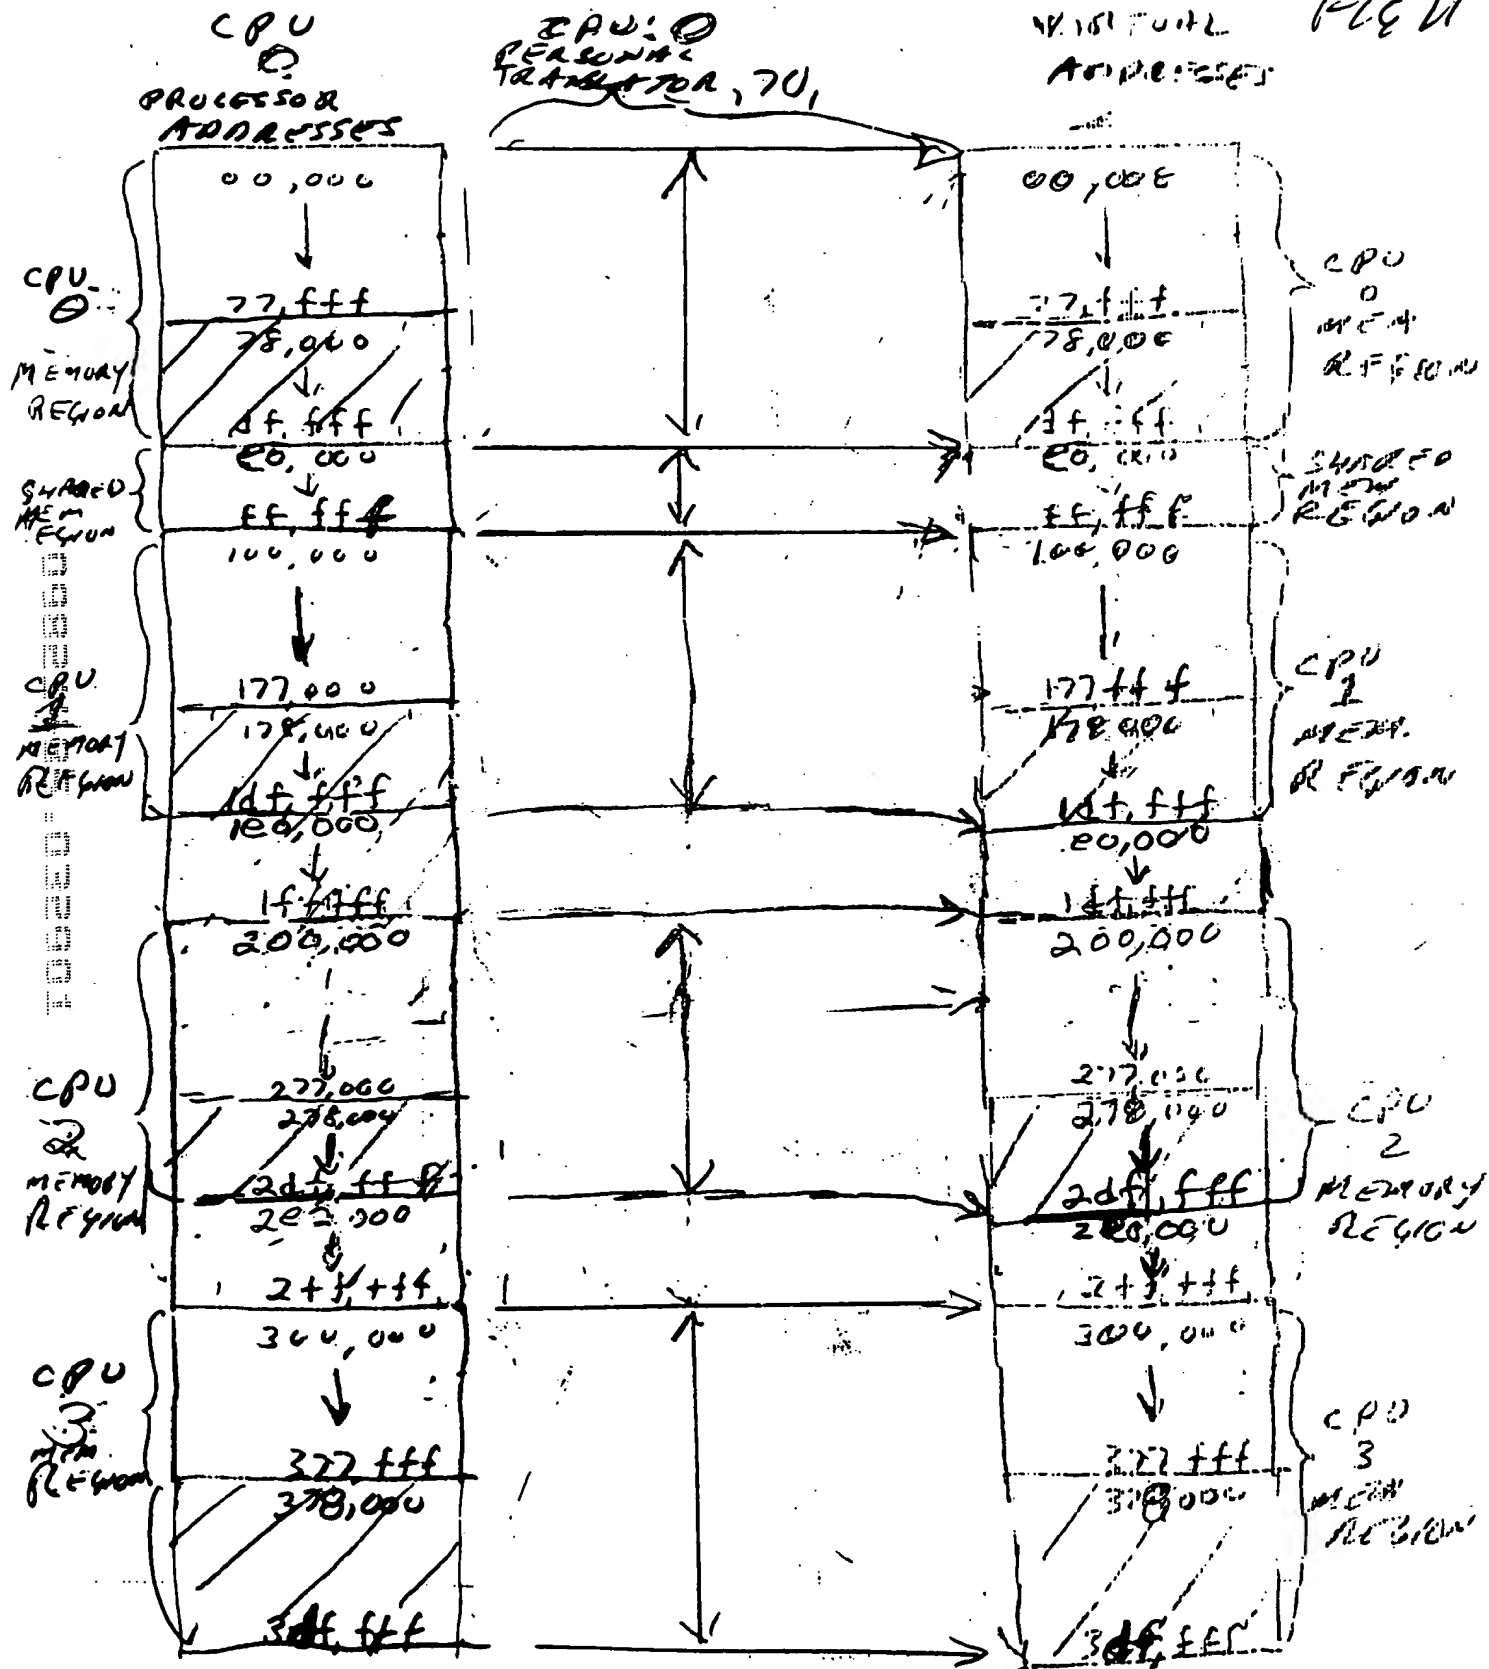 CPU
0
PROCESSOR
ADDRESSES
CPU: 0
PERSONAL
TRANSLATOR, 70,
VIRTUAL
ADDRESSES
00,000
77,fff
78,000
df,fff
e0,000
ff,fff
100,000
177,000
178,000
1df,fff
1e0,000,
1ff,fff
200,000
277,000
278,000
2df,fff
000
2ff,fff
300,000
377,fff
378,000
3df,fff
CPU
0
MEMORY
REGION
SHARED
MEM
REGION
CPU
1
MEMORY
REGION
CPU
2
MEMORY
REGION
CPU
3
MEM
REGION
00,000
77,fff
78,000
df,fff
e0,000
ff,fff
100,000
177fff
178,000
1df,fff
e0,000
1ff,fff
200,000
277,000
278,000
2df,fff
2e0,000
2ff,fff
300,000
377,fff
378,000
3df,fff
CPU
0
MEM
REGION
SHARED
MEM
REGION
CPU
1
MEM.
REGION
CPU
2
MEMORY
REGION
CPU
3
MEM
REGION